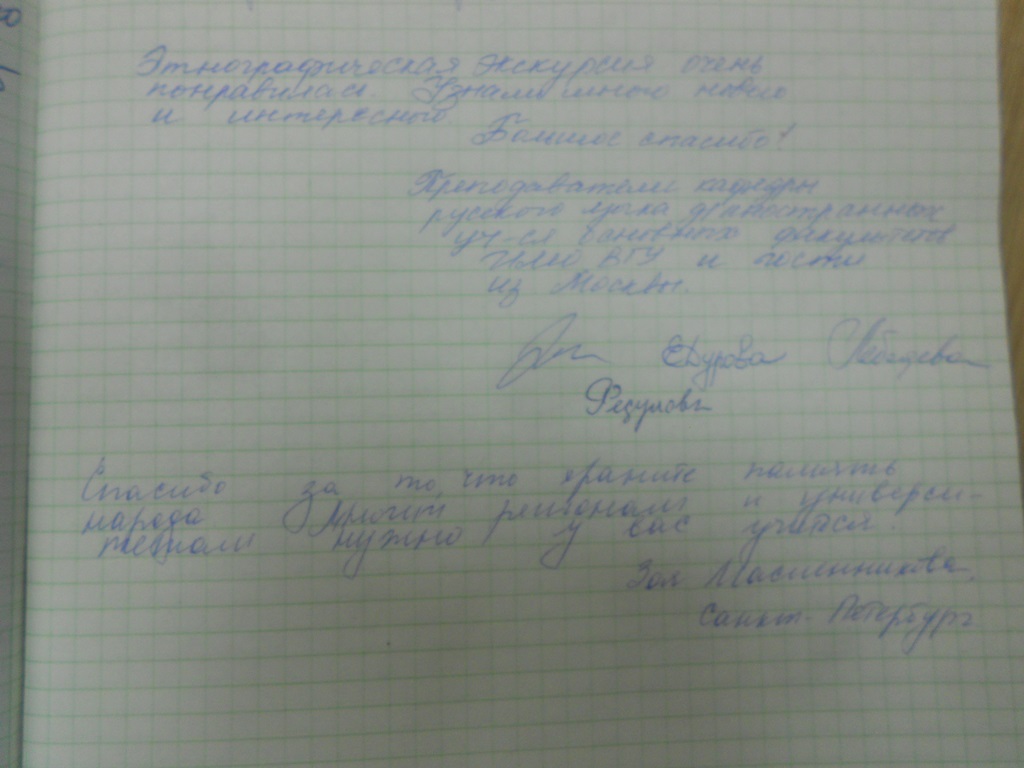 Этнографическая экскурсия очень
понравилась. Узнали много нового
и интересного.
Большое спасибо!
Преподаватели кафедры
русского языка для иностранных
уч-ся основных факультетов
ВГУ и гости
из Москвы.
ЕДурова Лебедева
Федулова
Спасибо за то, что храните память
народа. Многим регионам и универси-
тетам нужно у вас учиться.
Зоя Масленникова.
Санкт-Петербург